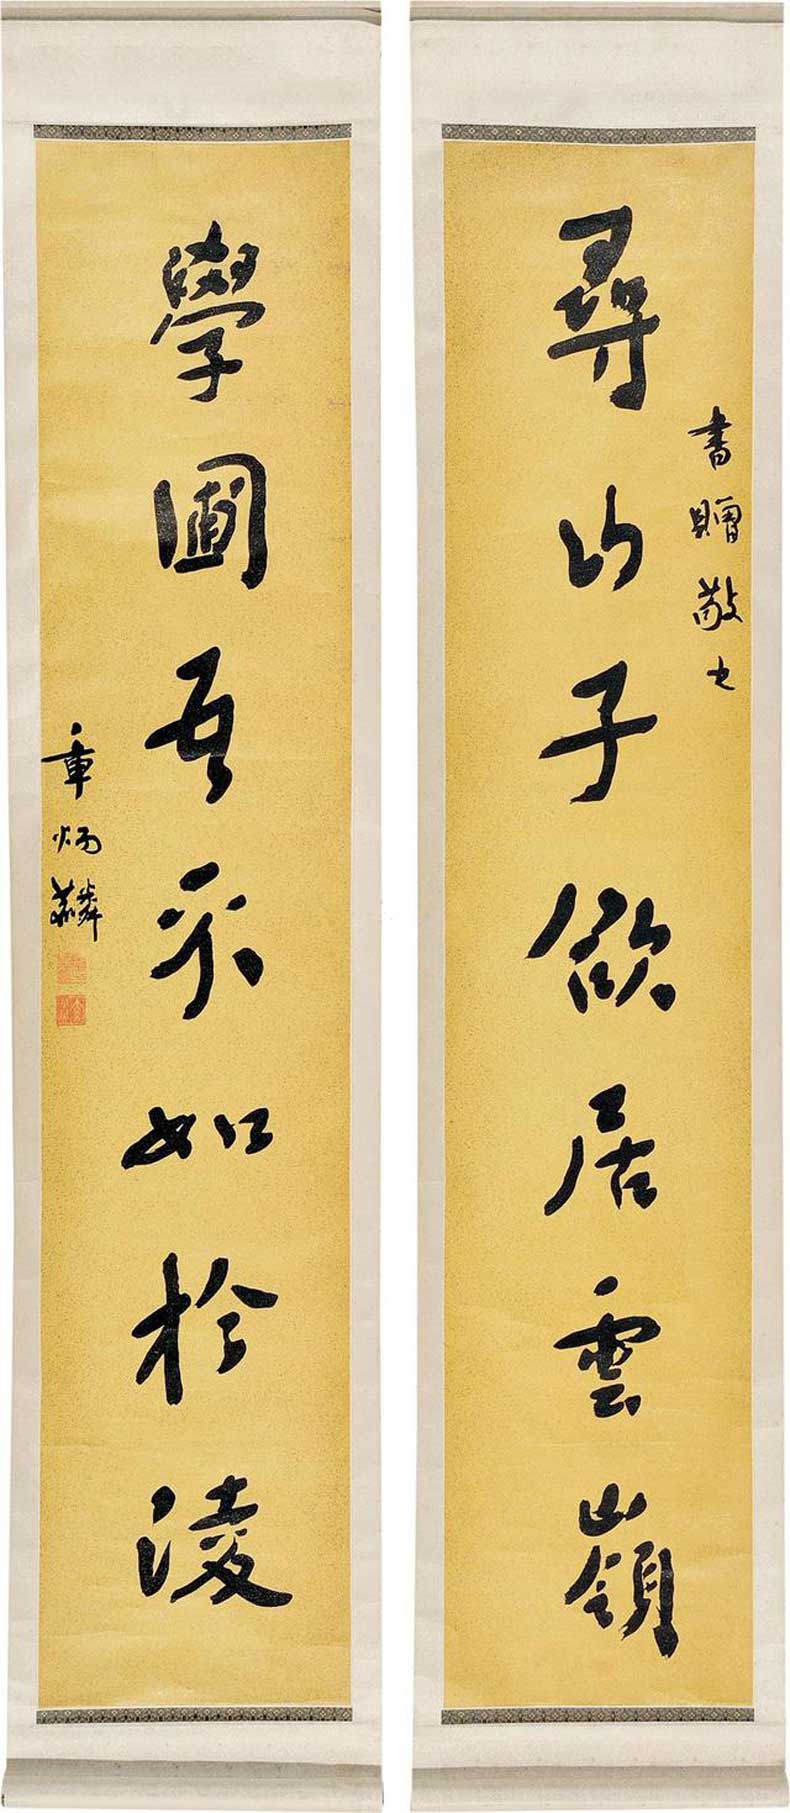 尋山子欲居雲嶺
書贈敬之
學圃吾不如於陵
章炳麟